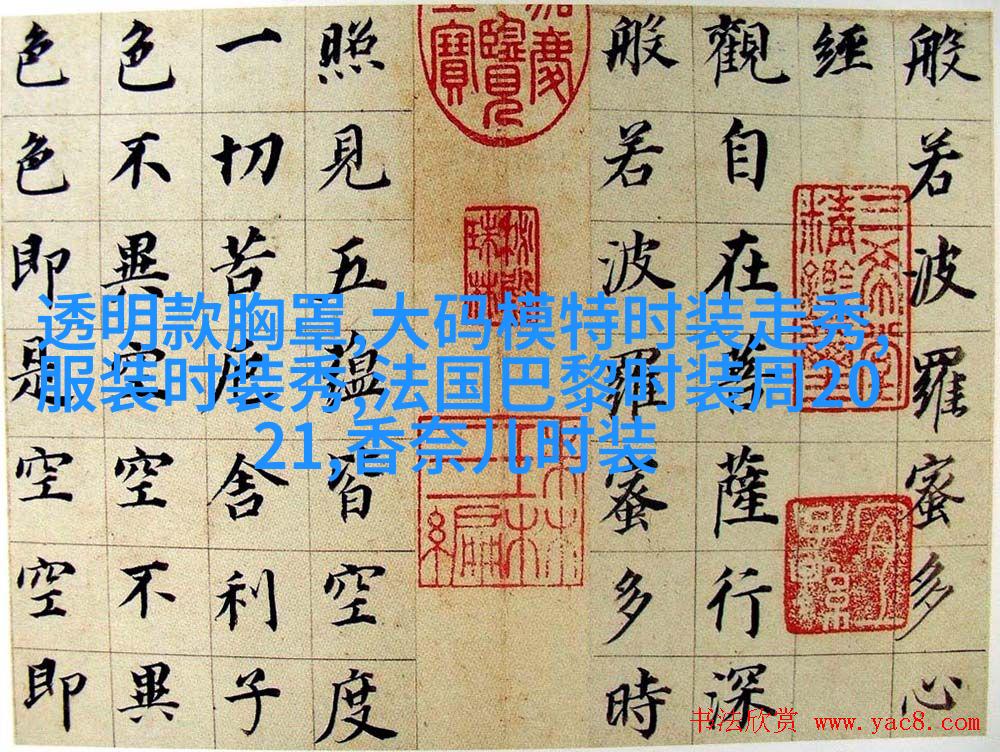 般若波羅蜜多心
經
觀自在菩薩行深
般若波羅蜜多時
照見五蘊皆空度
一切苦厄舍利子
色不異空空不異
色色即是空空即
三希堂精鑑璽
宜子孫
透明款胸罩,大码模特时装走秀,
服装时装秀,法国巴黎时装周20
21,香奈儿时装
书法欣赏 www.yac8.com